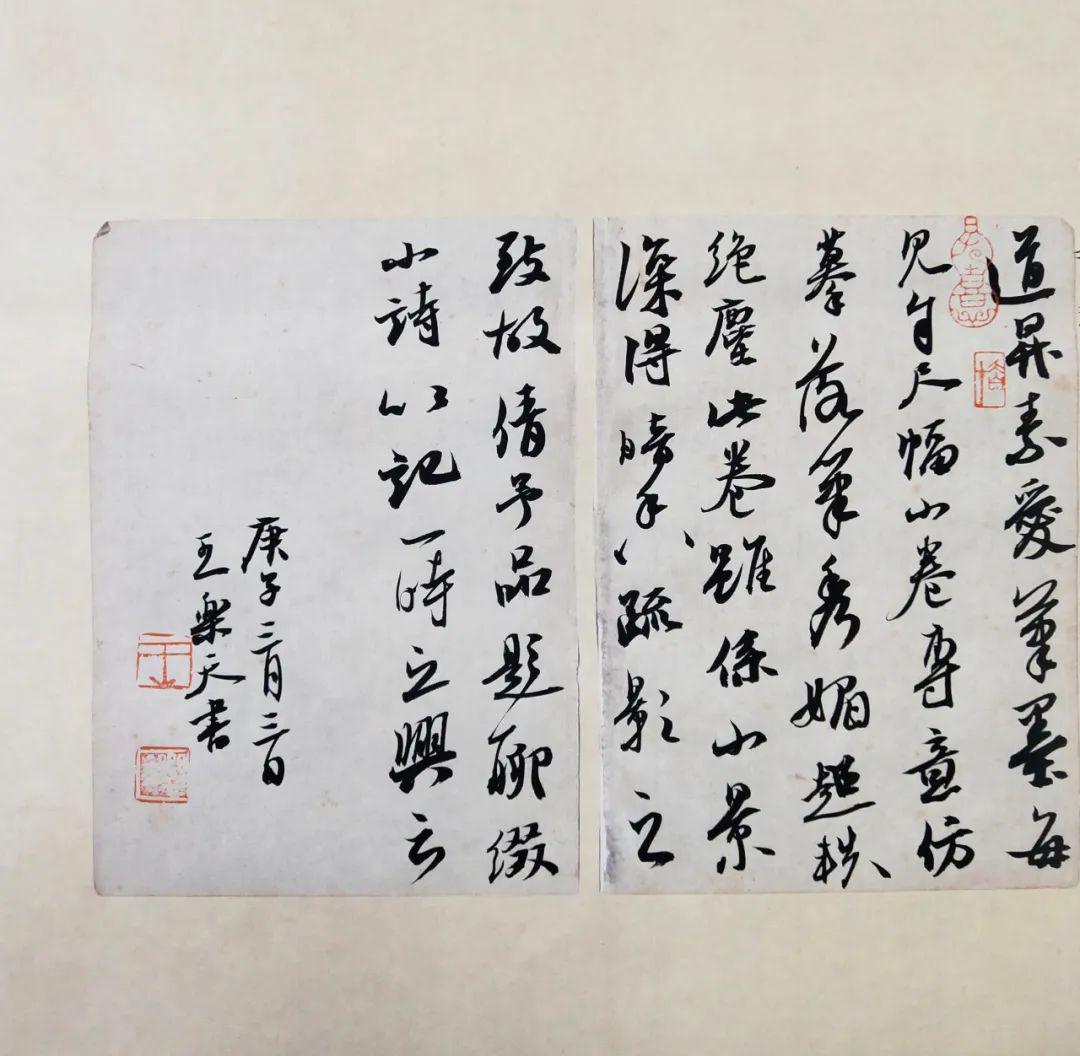 道昇素愛筆墨每
見尺幅小卷專意仿
摹落筆秀媚超軼
絕塵此卷雖係小景
深得暗香疏影之
致故倩予品題聊綴
小詩以記一時之興云
庚子三月三日
王樂天書